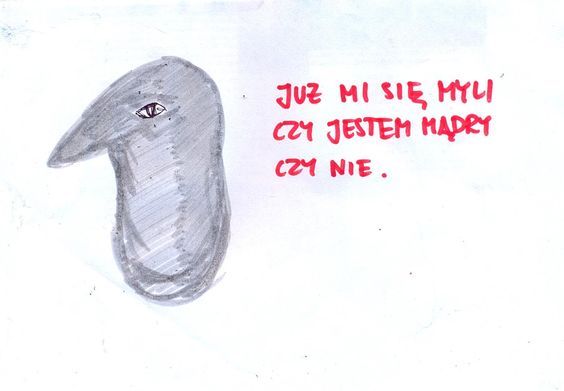 JUŻ MI SIĘ MYLI
CZY JESTEM MĄDRY
CZY NIE.